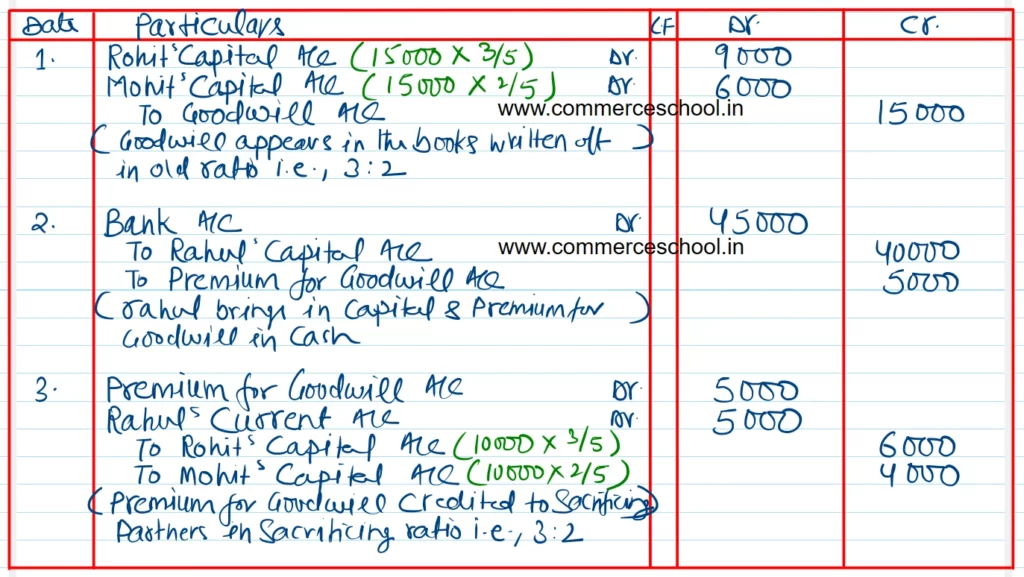 Date Particulars LF Dr. Cr.
1. Rohit's Capital A/C (15000 X 3/5) Dr. 9000
Mohit's Capital A/C (15000 X 2/5) Dr. 6000
To Goodwill A/C www.commerceschool.in 15000
(Goodwill appears in the books written off)
in old ratio i.e., 3:2
2. Bank A/C Dr. 45000
To Rahul's Capital A/C www.commerceschool.in 40000
To Premium for Goodwill A/C 5000
(rahul brings in Capital & Premium for)
Goodwill in Cash
3. Premium for Goodwill A/C Dr. 5000
Rahul's Current A/C Dr. 5000
To Rohit's Capital A/C (10000 X 3/5) 6000
To Mohit's Capital A/C (10000 X 2/5) 4000
(Premium for Goodwill Credited to Sacrificing)
Partners in Sacrificing ratio i.e., 3:2